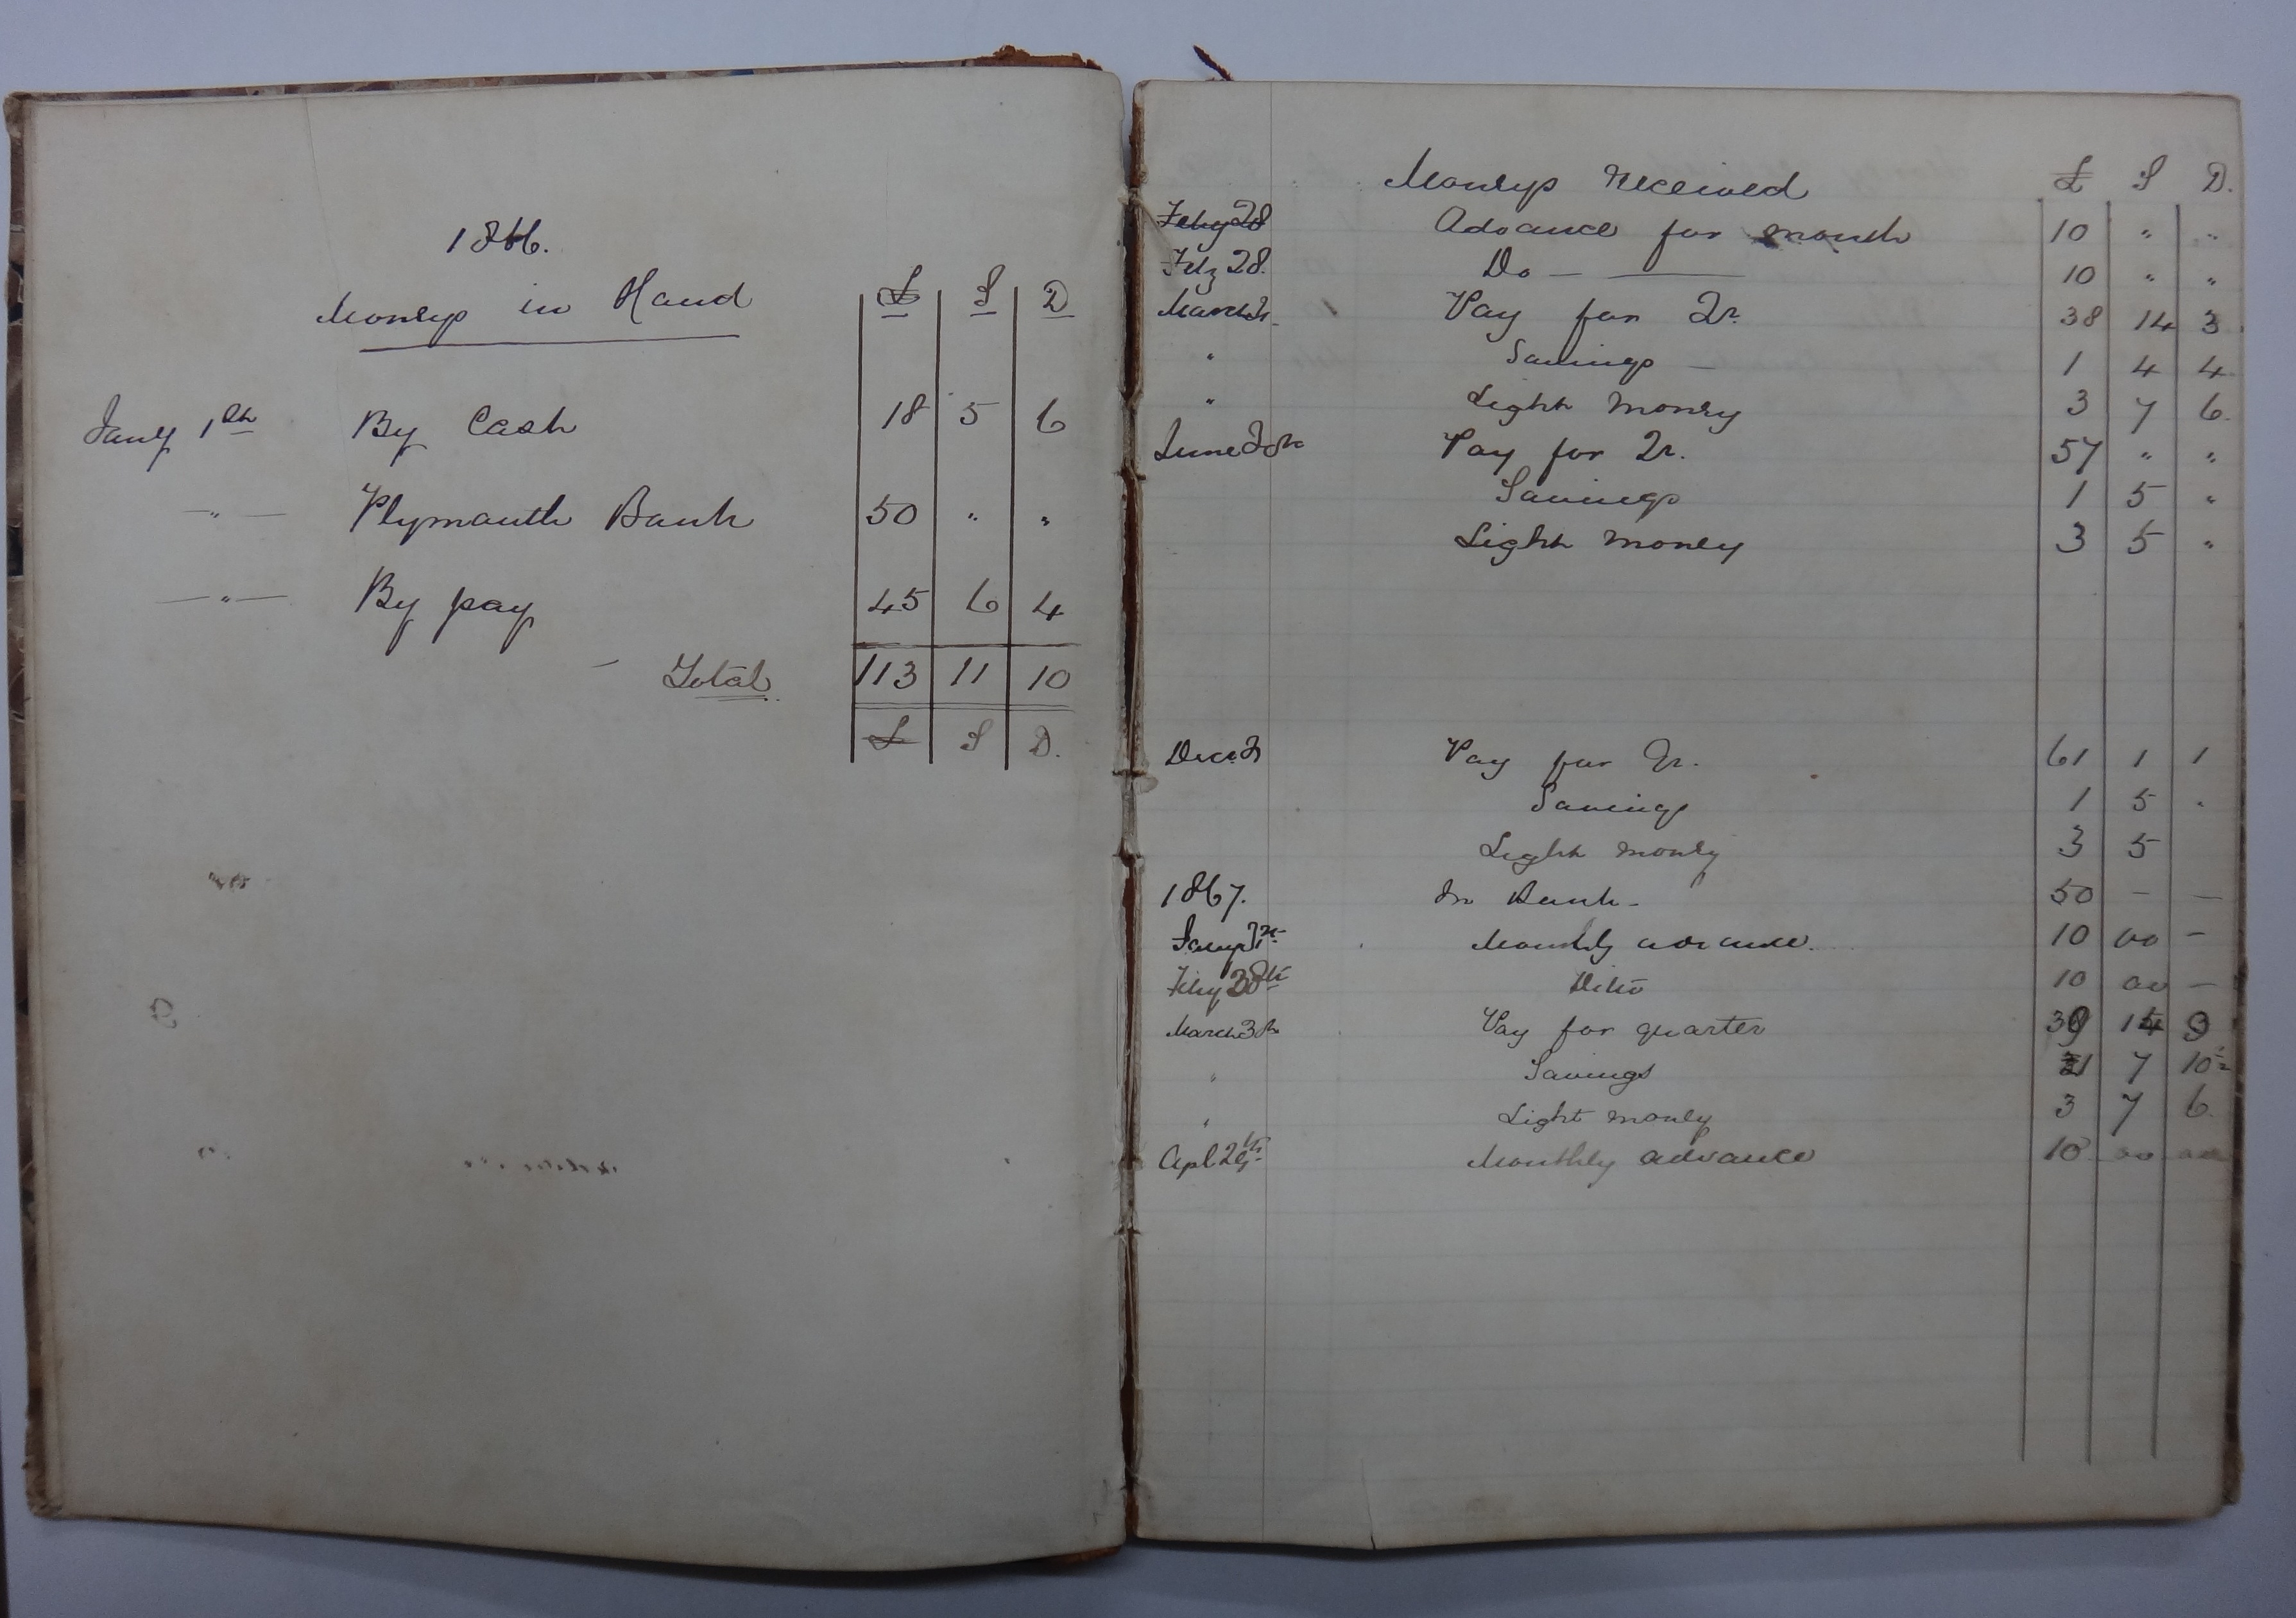 1866.
Moneys in Hand £ S D
Jany 1st By Cash 18 5 6
—"— Plymouth Bank 50 " "
—"— By pay 45 6 4
Total 113 11 10
£ S D.
Moneys received £ S D.
Advance for month 10 " "
Feby 28. Do — 10 " "
March 31 Pay for Qr. 38 14 3
" Savings — 1 4 4
" Light money 3 7 6.
June 30th Pay for Qr. 57 " "
Savings 1 5 "
Light money 3 5 "
Decr 31 Pay for Qr. 61 1 1
Savings 1 5 "
Light money 3 5
1867. In Bank - 50 — —
Jany 31st Monthly advance. 10 00 —
Feby 28th Ditto 10 00 —
March 30th Pay for quarter
" Savings 1 7 10
" Light money 3 7 6.
Apl 29th Monthly advance 10 00 00